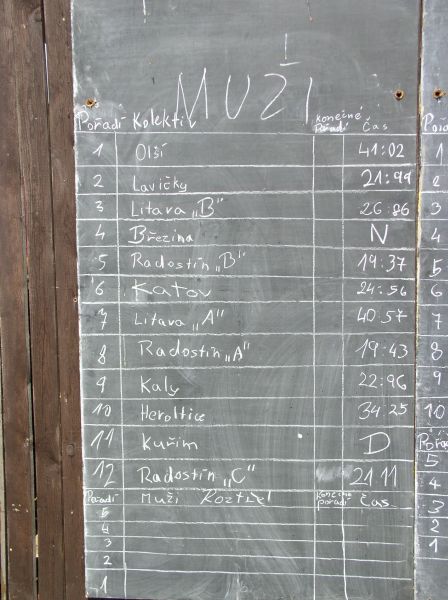 MUŽI
Pořadí Kolektiv konečné Pořadí čas
1 Olší 41:02
2 Lavičky 21:99
3 Litava „B“ 26:86
4 Březina N
5 Radostín „B“ 19:37
6 Katov 24:56
7 Litava „A“ 40:57
8 Radostín „A“ 19:43
9 Kaly 22:96
10 Heroltice 34 25
11 Kuřim D
12 Radostín „C“ 21 11
Pořadí Muži konečné pořadí čas
5
4
3
2
1
Pořa
1
2
3
4
5
6
7
8
9
10
Poř
5
4
3
2
1